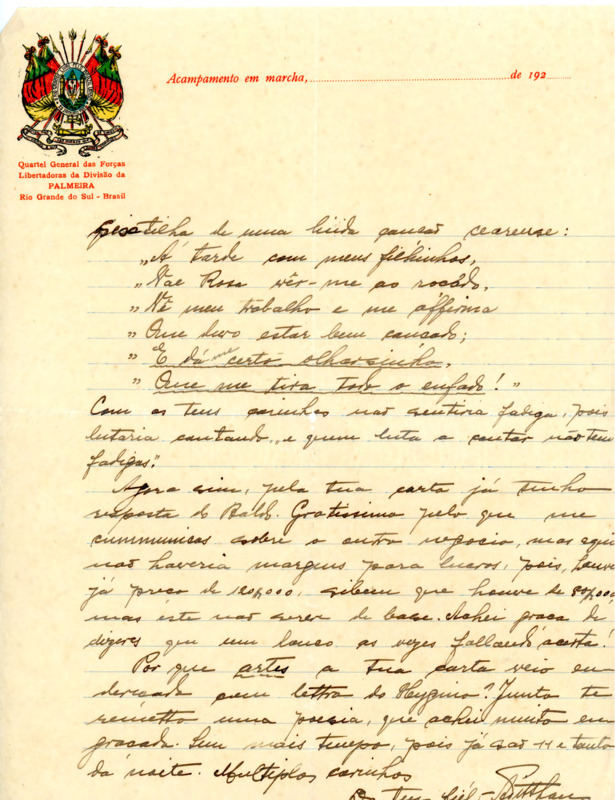 Acampamento em marcha, de 192
Quartel General das Forças
Libertadoras da Divisão da
PALMEIRA
Rio Grande do Sul - Brasil
de uma linda canção cearense:
„A' tarde com meus filhinhos,
„Vae Rosa vêr-me ao roçádo,
„Vê meu trabalho e me affirma
„Que devo estar bem cançado;
„E dá me certo olharsinho,
„Que me tira todo o enfado!"
Com os teus carinhos não sentiria fadiga, pois
lutaria cantando, „e quem luta a cantar não tem
fadigas".
Agora sim, pela tua carta já tenho
resposta do Baldo. Gratissimo pelo que me
cummunicas sobre o outro negocio, mas aqui
não haveria margens para lucros, pois, houve
já preço de 120,000, sibem que houve de 80,000
mas éste não serve de base. Achei graça de
dizeres que um louco as vezes fallando acerta.
Por que artes a tua carta veio en-
dereçada com lettra do Hygino? Junto te
remetto uma poesia, que achei muito en-
graçada. Sem mais tempo, pois já são 11 e tanto
da noite. Multiplos carinhos
Do teu fiél